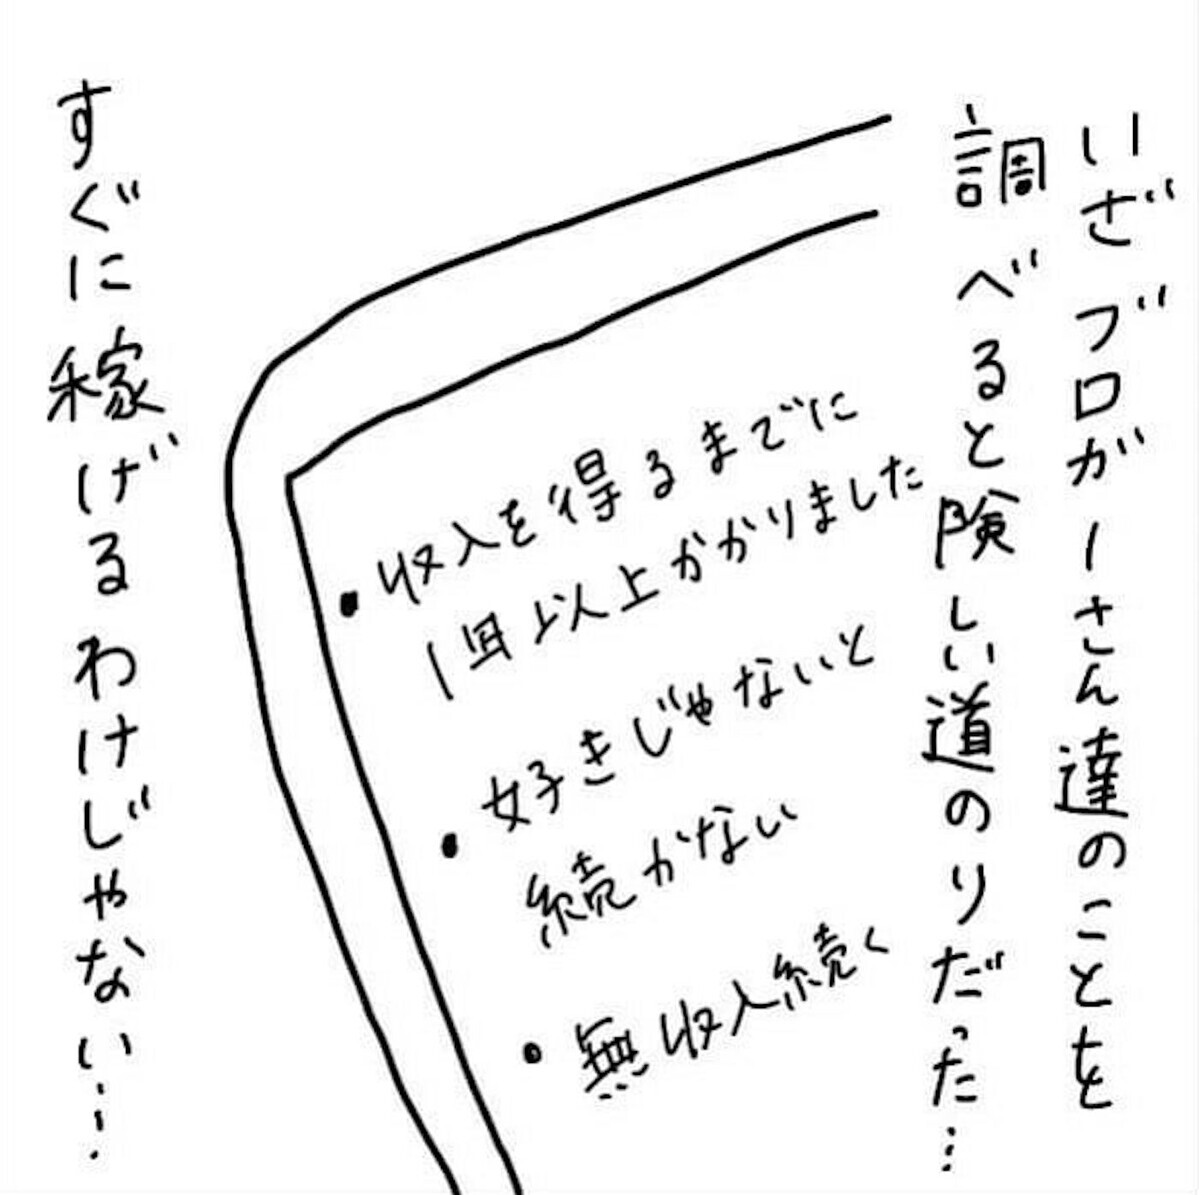 いざブロガーさん達のことを
調べると険しい道のりだった…
・収入を得るまでに
1年以上かかりました
・好きじゃないと
続かない
・無収入続く
すぐに稼げるわけじゃない…